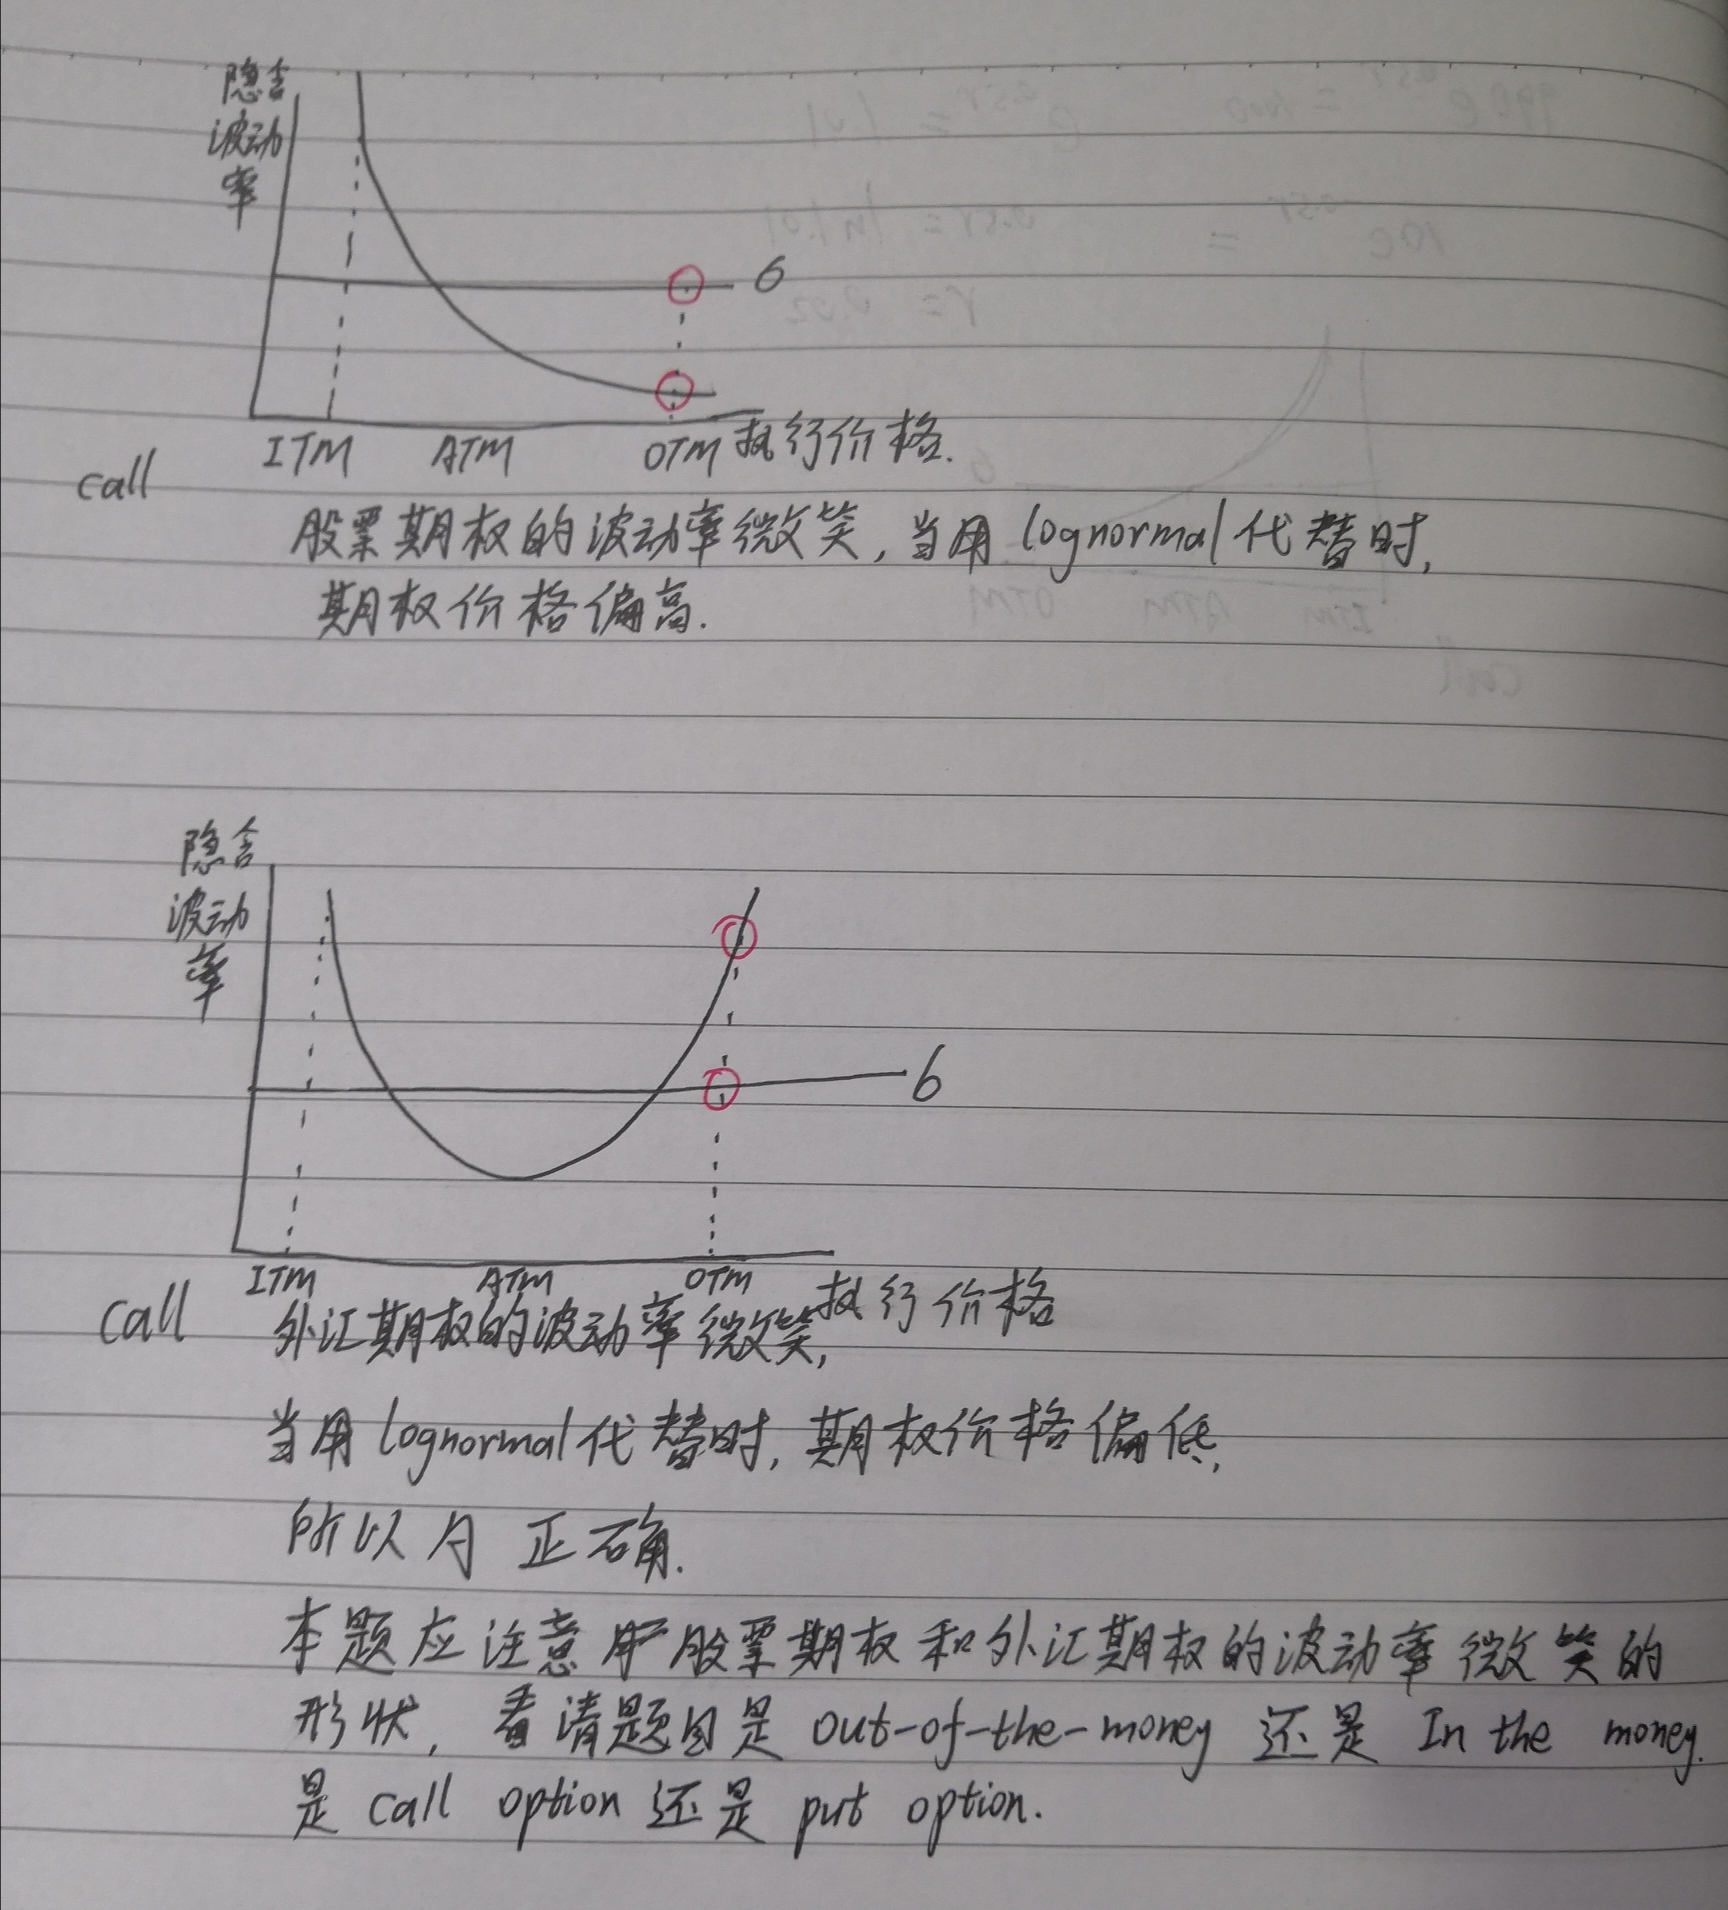 隐含
波动
率
6
ITM ATM OTM 执行价格.
call
股票期权的波动率微笑,当用 lognormal 代替时,
期权价格偏高.
隐含
波动
率
6
ITM ATM OTM 执行价格
call 外汇期权的波动率微笑,
当用 lognormal 代替时, 期权价格偏低,
所以 A 正确.
本题应注意 股票期权和外汇期权的波动率微笑的
形状, 看清题目是 out-of-the-money 还是 In the money.
是 call option 还是 put option.